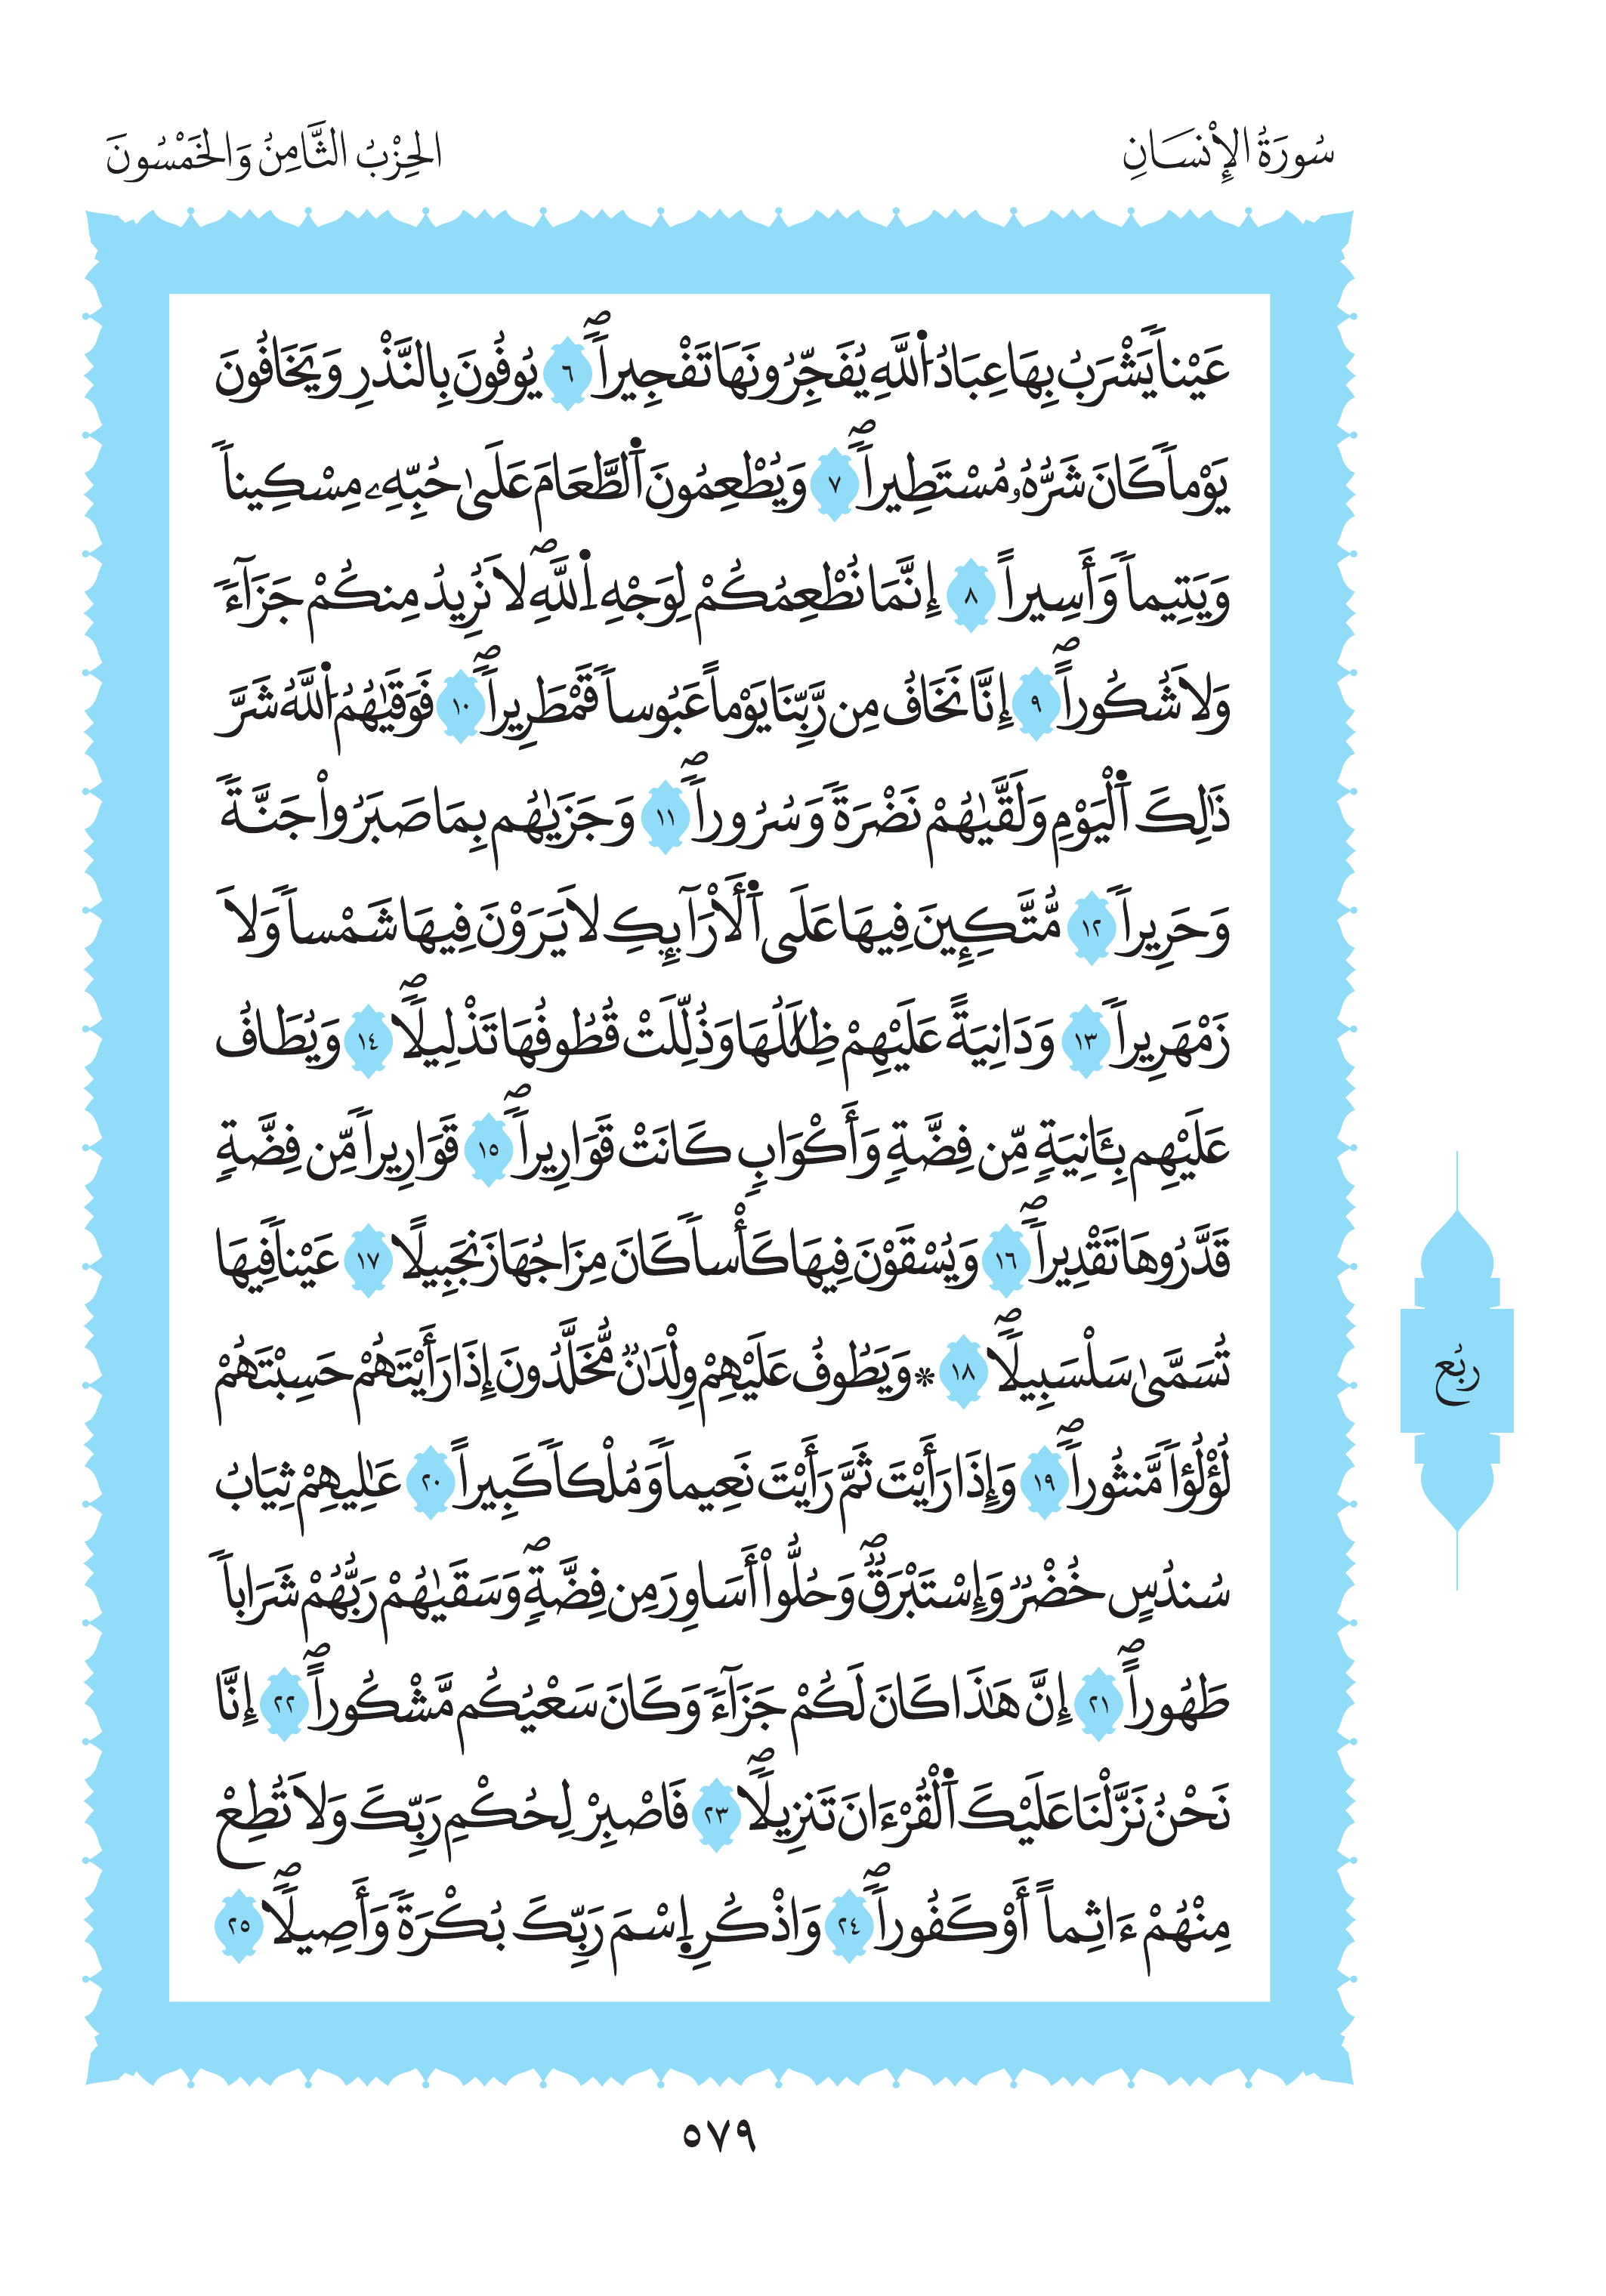 سُورَةُ الْإِنْسَانِ
الْحِزْبُ الثَّامِنُ وَالْخَمْسُونَ
عَيْناٗ يَشْرَبُ بِهَا عِبَادُ اُ۬للَّهِ يُفَجِّرُونَهَا تَفْجِيراٗۖ ٦ يُوفُونَ بِالنَّذْرِ وَيَخَافُونَ
يَوْماٗ كَانَ شَرُّهُۥ مُسْتَطِيراٗۖ ٧ وَيُطْعِمُونَ اَ۬لطَّعَامَ عَلَىٰ حُبِّهِۦ مِسْكِيناٗ
وَيَتِيماٗ وَأَسِيراً ٨ إِنَّمَا نُطْعِمُكُمْ لِوَجْهِ اِ۬للَّهِۖ لَا نُرِيدُ مِنكُمْ جَزَآءٗ
وَلَا شُكُوراًۖ ٩ إِنَّا نَخَافُ مِن رَّبِّنَا يَوْماً عَبُوساٗ قَمْطَرِيراٗۖ ١٠ فَوَقَيٰهُمُ اُ۬للَّهُ شَرَّ
ذَٰلِكَ اَ۬لْيَوْمِ وَلَقَّيٰهُمْ نَضْرَةٗ وَسُرُوراٗۖ ١١ وَجَزَيٰهُم بِمَا صَبَرُواْ جَنَّةٗ
وَحَرِيراٗ ١٢ مُّتَّكِـِٕينَ فِيهَا عَلَى اَ۬لْأَرَآئِكِ لَا يَرَوْنَ فِيهَا شَمْساٗ وَلَا
زَمْهَرِيراٗ ١٣ وَدَانِيَةً عَلَيْهِمْ ظِلَٰلُهَا وَذُلِّلَتْ قُطُوفُهَا تَذْلِيلاٗۖ ١٤ وَيُطَافُ
عَلَيْهِم بِـَٔانِيَةٖ مِّن فِضَّةٖ وَأَكْوَابٖ كَانَتْ قَوَارِيراٗۖ ١٥ قَوَارِيراٗ مِّن فِضَّةٖ
قَدَّرُوهَا تَقْدِيراٗۖ ١٦ وَيُسْقَوْنَ فِيهَا كَأْساٗ كَانَ مِزَاجُهَا زَنجَبِيلاً ١٧ عَيْناٗ فِيهَا
تُسَمَّىٰ سَلْسَبِيلاٗۖ ١٨ ۞وَيَطُوفُ عَلَيْهِمْ وِلْدَٰنٞ مُّخَلَّدُونَ إِذَا رَأَيْتَهُمْ حَسِبْتَهُمْ
لُؤْلُؤاٗ مَّنثُوراٗۖ ١٩ وَإِذَا رَأَيْتَ ثَمَّ رَأَيْتَ نَعِيماٗ وَمُلْكاٗ كَبِيراً ٢٠ عَٰلِيهِمْ ثِيَابُ
سُندُسٍ خُضْرٞ وَإِسْتَبْرَقٞۖ وَحُلُّواْ أَسَاوِرَ مِن فِضَّةٖۖ وَسَقَيٰهُمْ رَبُّهُمْ شَرَاباٗ
طَهُوراًۖ ٢١ إِنَّ هَٰذَا كَانَ لَكُمْ جَزَآءٗ وَكَانَ سَعْيُكُم مَّشْكُوراًۖ ٢٢ إِنَّا
نَحْنُ نَزَّلْنَا عَلَيْكَ اَ۬لْقُرْءَانَ تَنزِيلاٗۖ ٢٣ فَاصْبِرْ لِحُكْمِ رَبِّكَ وَلَا تُطِعْ
مِنْهُمْ ءَاثِماً أَوْ كَفُوراٗۖ ٢٤ وَاذْكُرِ اِ۪سْمَ رَبِّكَ بُكْرَةٗ وَأَصِيلاٗۖ ٢٥
رُبُع
٥٧٩